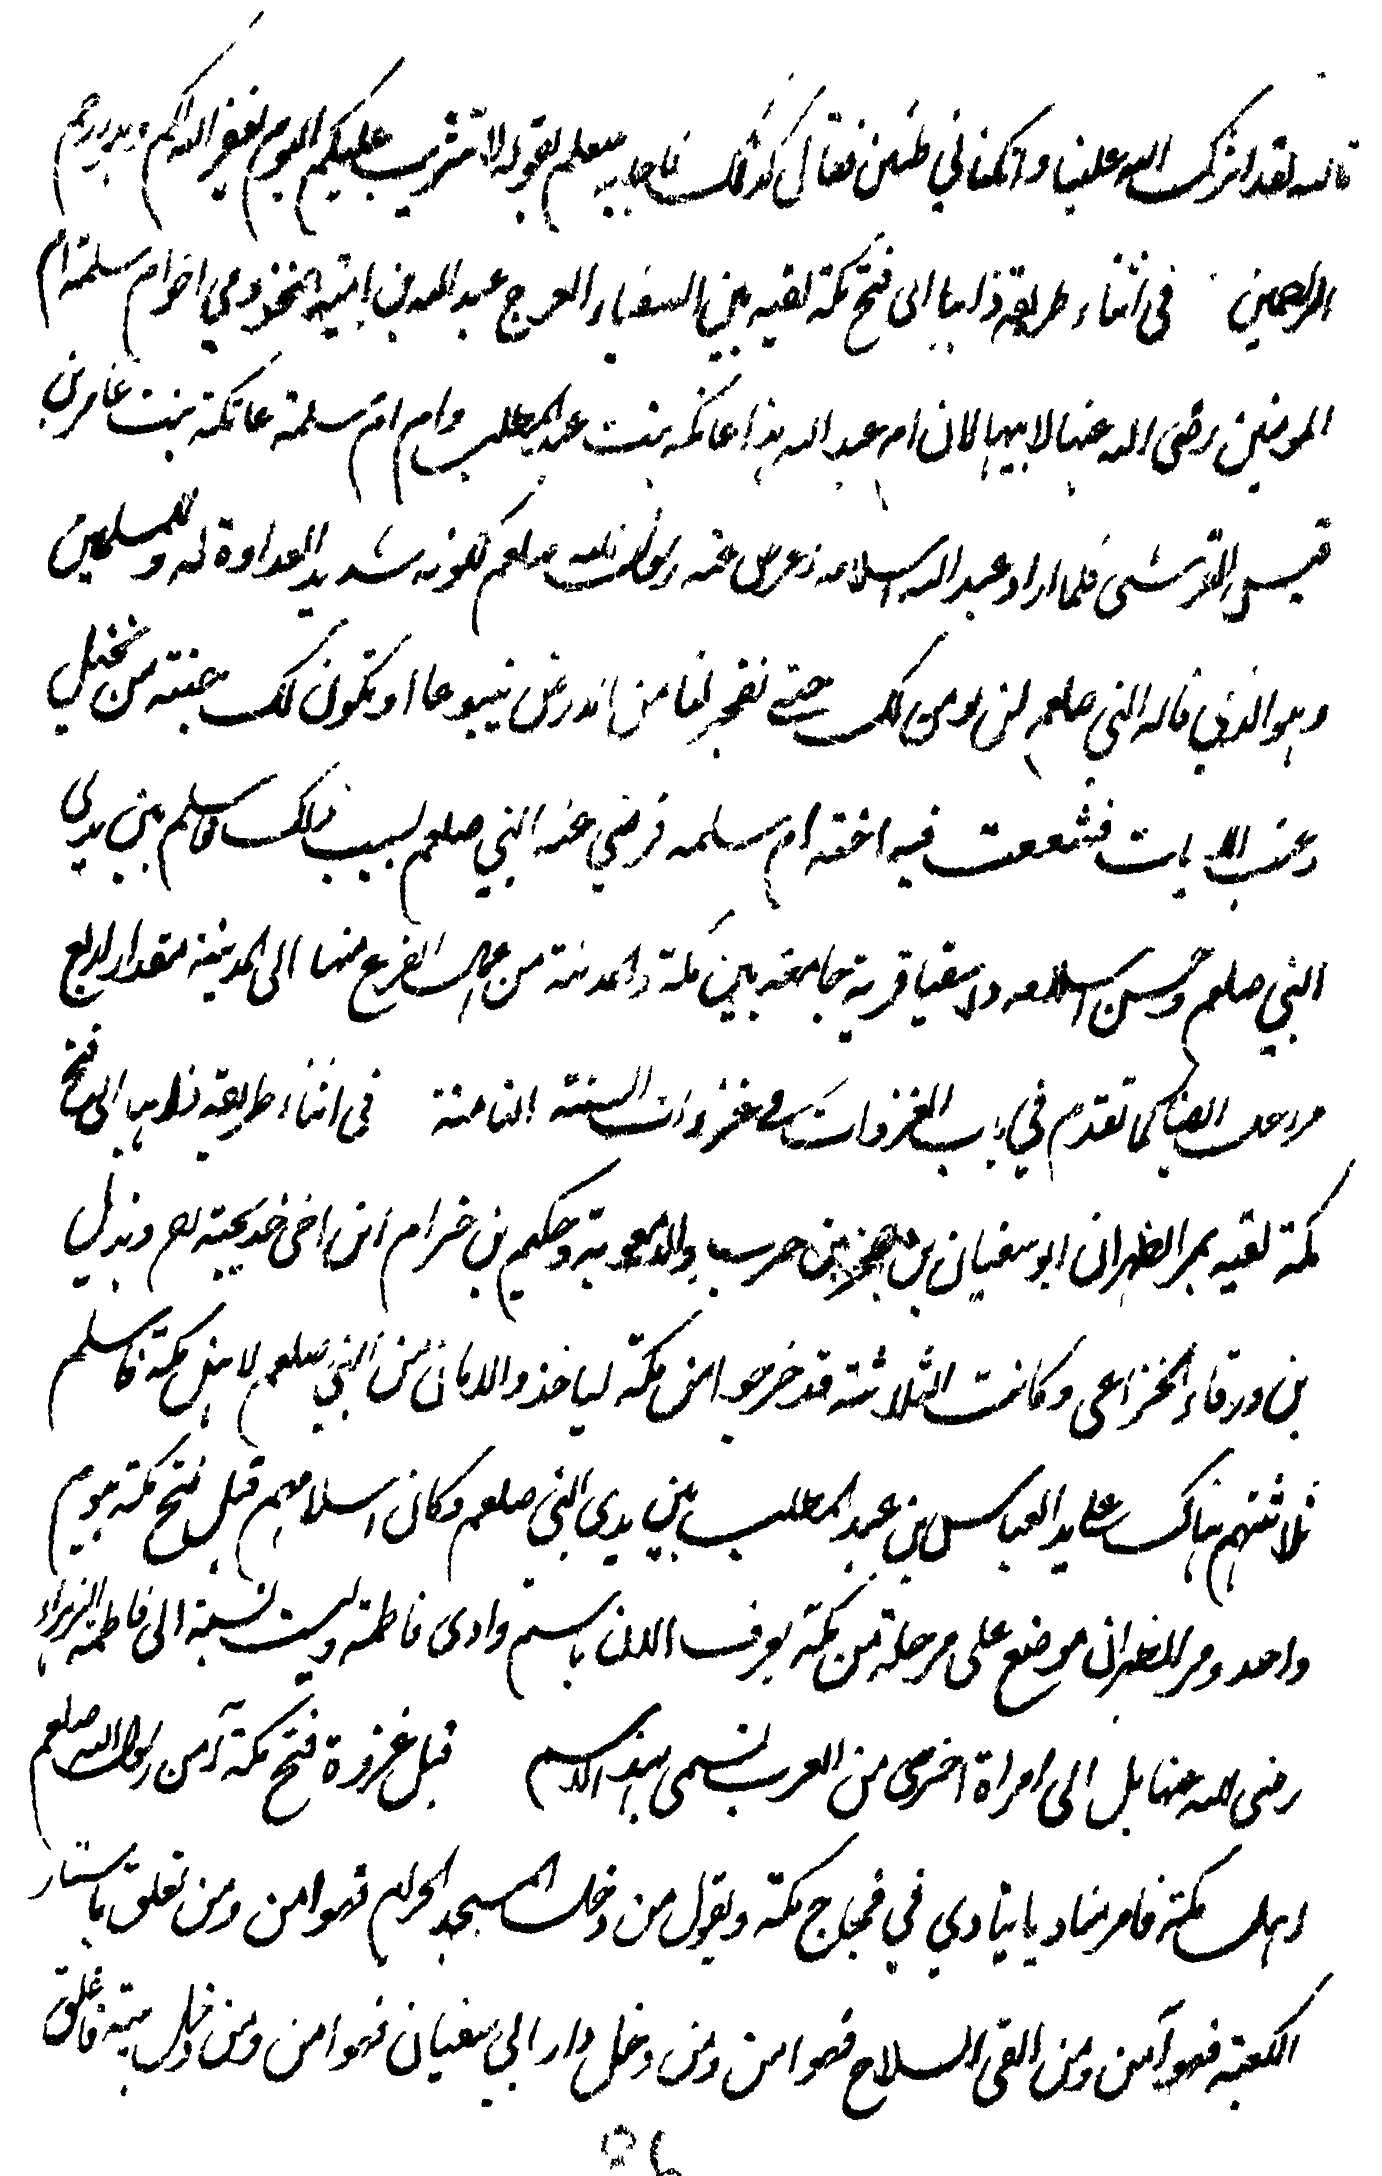 تالله لقد اثرك الله علينا وان كنا لخاطئين فقال كذلك فاجابه صلعم بقوله لا تثريب عليكم اليوم يغفر الله لكم وهو ارحم
الراحمين في اثناء طريقه ذاهبا الى فتح مكة لقيه بين السقيا والعرج عبد الله بن امية المخزومي اخو ام سلمة ام
المومنين رضى الله عنها لابيها لان ام عبد الله هذا عاتكة بنت عبد المطلب وام ام سلمة عاتكة بنت عامر بن
قيس القرشى فلما اراد عبد الله اسلامه اعرض عنه رسول الله صلعم لكونه شديد العداوة له وللمسلمين
وهو الذي قال للنبي صلعم لن نومن لك حتى تفجر لنا من الارض ينبوعا او تكون لك جنة من نخيل
وعنب الايات فشفعت فيه اخته ام سلمه فرضي عنه النبي صلعم بسبب ذلك فاسلم بين يدي
النبي صلعم وحسن اسلامه والسقيا قرية جامعة بين مكة والمدينة من عمال الفرع منها الى المدينة مقدار اربع
مراحل ايضا كما تقدم في باب الغزوات في غزوات السنة الثامنة في اثناء طريقه ذاهبا الى فتح
مكة لقيه بمر الظهران ابو سفيان بن صخر بن حرب والد معوية وحكيم بن حزام ابن اخى خديجة رض وبديل
بن ورقاء الخزاعى وكانت الثلاثة قد خرجوا من مكة لياخذوا الامان من النبي صلعم لاهل مكة فاسلم
ثلاثتهم هناك على يد العباس بن عبد المطلب بين يدى النبي صلعم وكان اسلامهم قبل فتح مكة بيوم
واحد ومر الظهران موضع على مرحلة من مكة يعرف الان باسم وادى فاطمة وليست نسبة الى فاطمة الزهراء
رضى الله عنها بل الى امراة اخرى من العرب تسمى بهذا الاسم قبل غزوة فتح مكة آمن رسول الله صلعم
اهل مكة فامر مناديا ينادي في فجاج مكة ويقول من دخل المسجد الحرام فهو امن ومن تعلق باستار
الكعبة فهو آمن ومن القى السلاح فهو امن ومن دخل دار ابي سفيان فهو امن ومن دخل بيته فاغلق